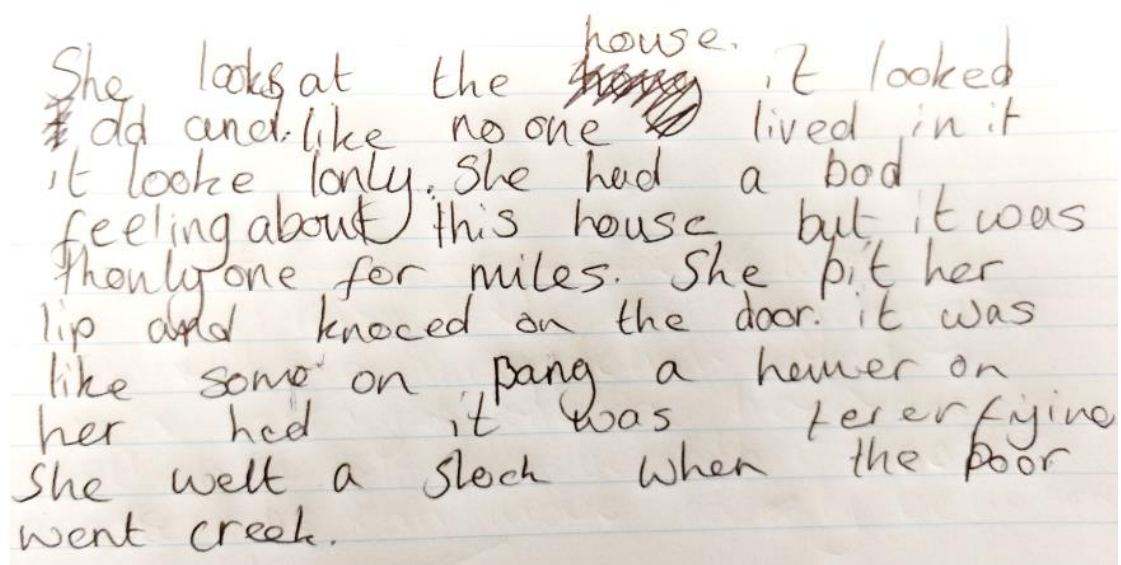 She looks at the house. it looked
old and like no one lived in it
it looke lonly. She had a bad
feeling about this house but it was
thonly one for miles. She pit her
lip and knoced on the door. it was
like some on pang a hemer on
her hed it was tererfying
She welt a sloch when the poor
went creek.